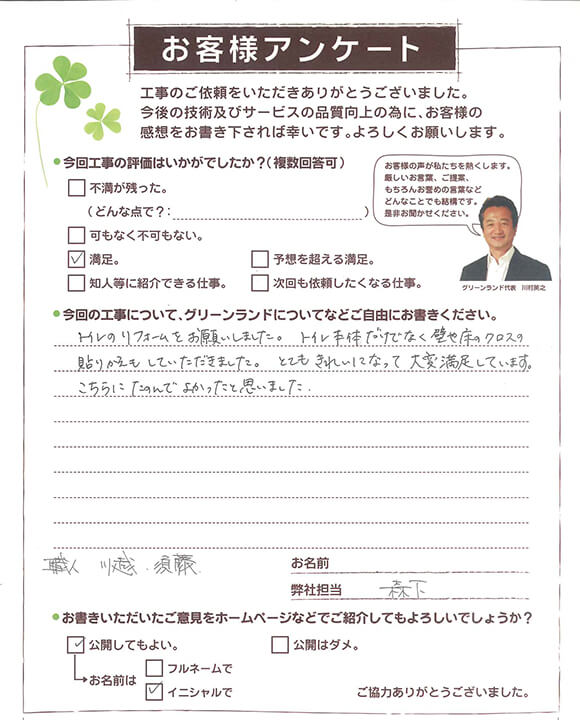 お客様アンケート
工事のご依頼をいただきありがとうございました。
今後の技術及びサービスの品質向上の為に、お客様の
感想をお書き下されば幸いです。よろしくお願いします。
今回工事の評価はいかがでしたか？(複数回答可)
不満が残った。
(どんな点で？:)
可もなく不可もない。
満足。
予想を超える満足。
知人等に紹介できる仕事。
次回も依頼したくなる仕事。
お客様の声が私たちを熱くします。
厳しいお言葉、ご提案、
もちろんお誉めの言葉など
どんなことでも結構です。
是非お聞かせください。
グリーンランド代表 川村英之
今回の工事について、グリーンランドについてなどご自由にお書きください。
トイレのリフォームをお願いしました。トイレ本体だけでなく壁や床のクロスの
貼りかえもしていただきました。とてもきれいになって大変満足しています。
こちらにたのんでよかったと思いました.
職人 川越.須藤
お名前
弊社担当 森下
お書きいただいたご意見をホームページなどでご紹介してもよろしいでしょうか？
公開してもよい。
公開はダメ。
お名前は
フルネームで
イニシャルで
ご協力ありがとうございました。